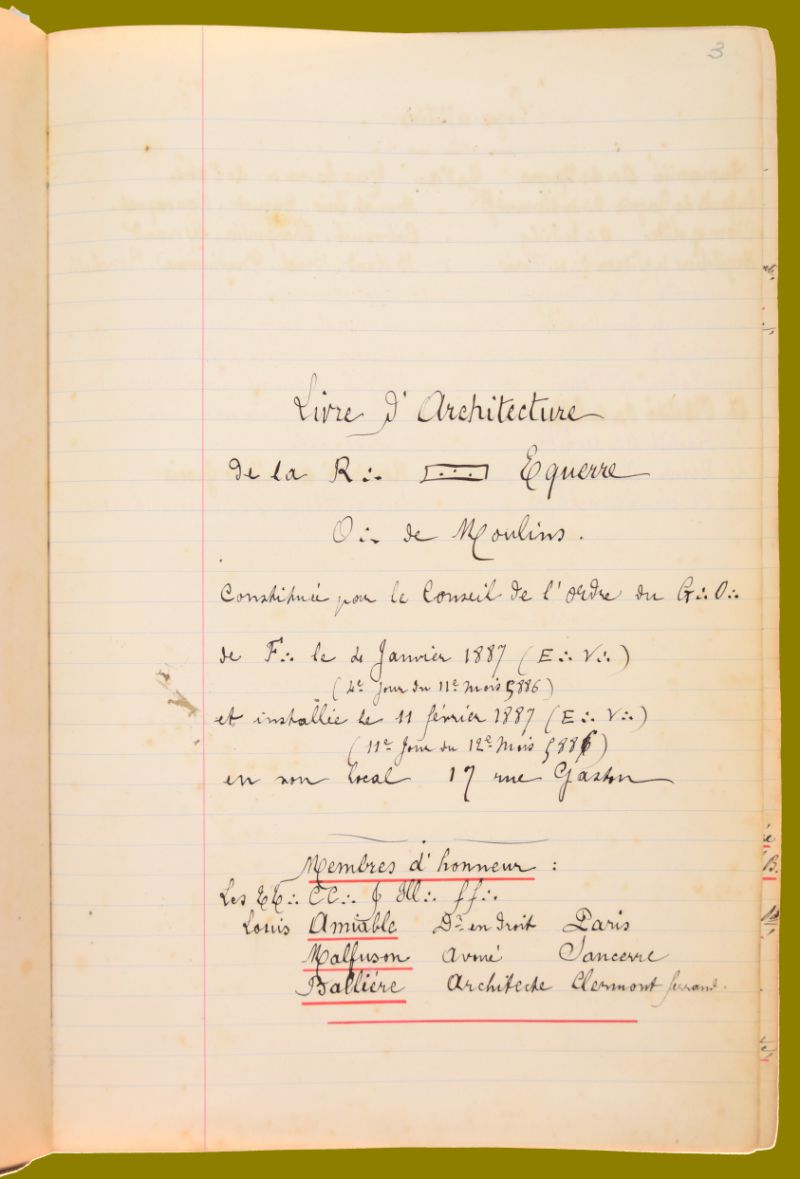 3
Livre d'Architecture
de la R∴ [∴] Equerre
O∴ de Moulins.
Constituée par le Conseil de l'Ordre du G∴O∴
de F∴ le 4 Janvier 1887 (E∴ V∴)
(4e Jour du 11e Mois 5886)
et installée le 11 février 1887 (E∴ V∴)
(11e Jour du 12e Mois 5886)
en son local 17 rue Gaston
Membres d'honneur :
Les TT∴ CC∴ & Ill∴ ff∴
Louis Amiable Dr en droit Paris
Malfuson avoué Sancerre
Ballière Architecte Clermont ferrand.